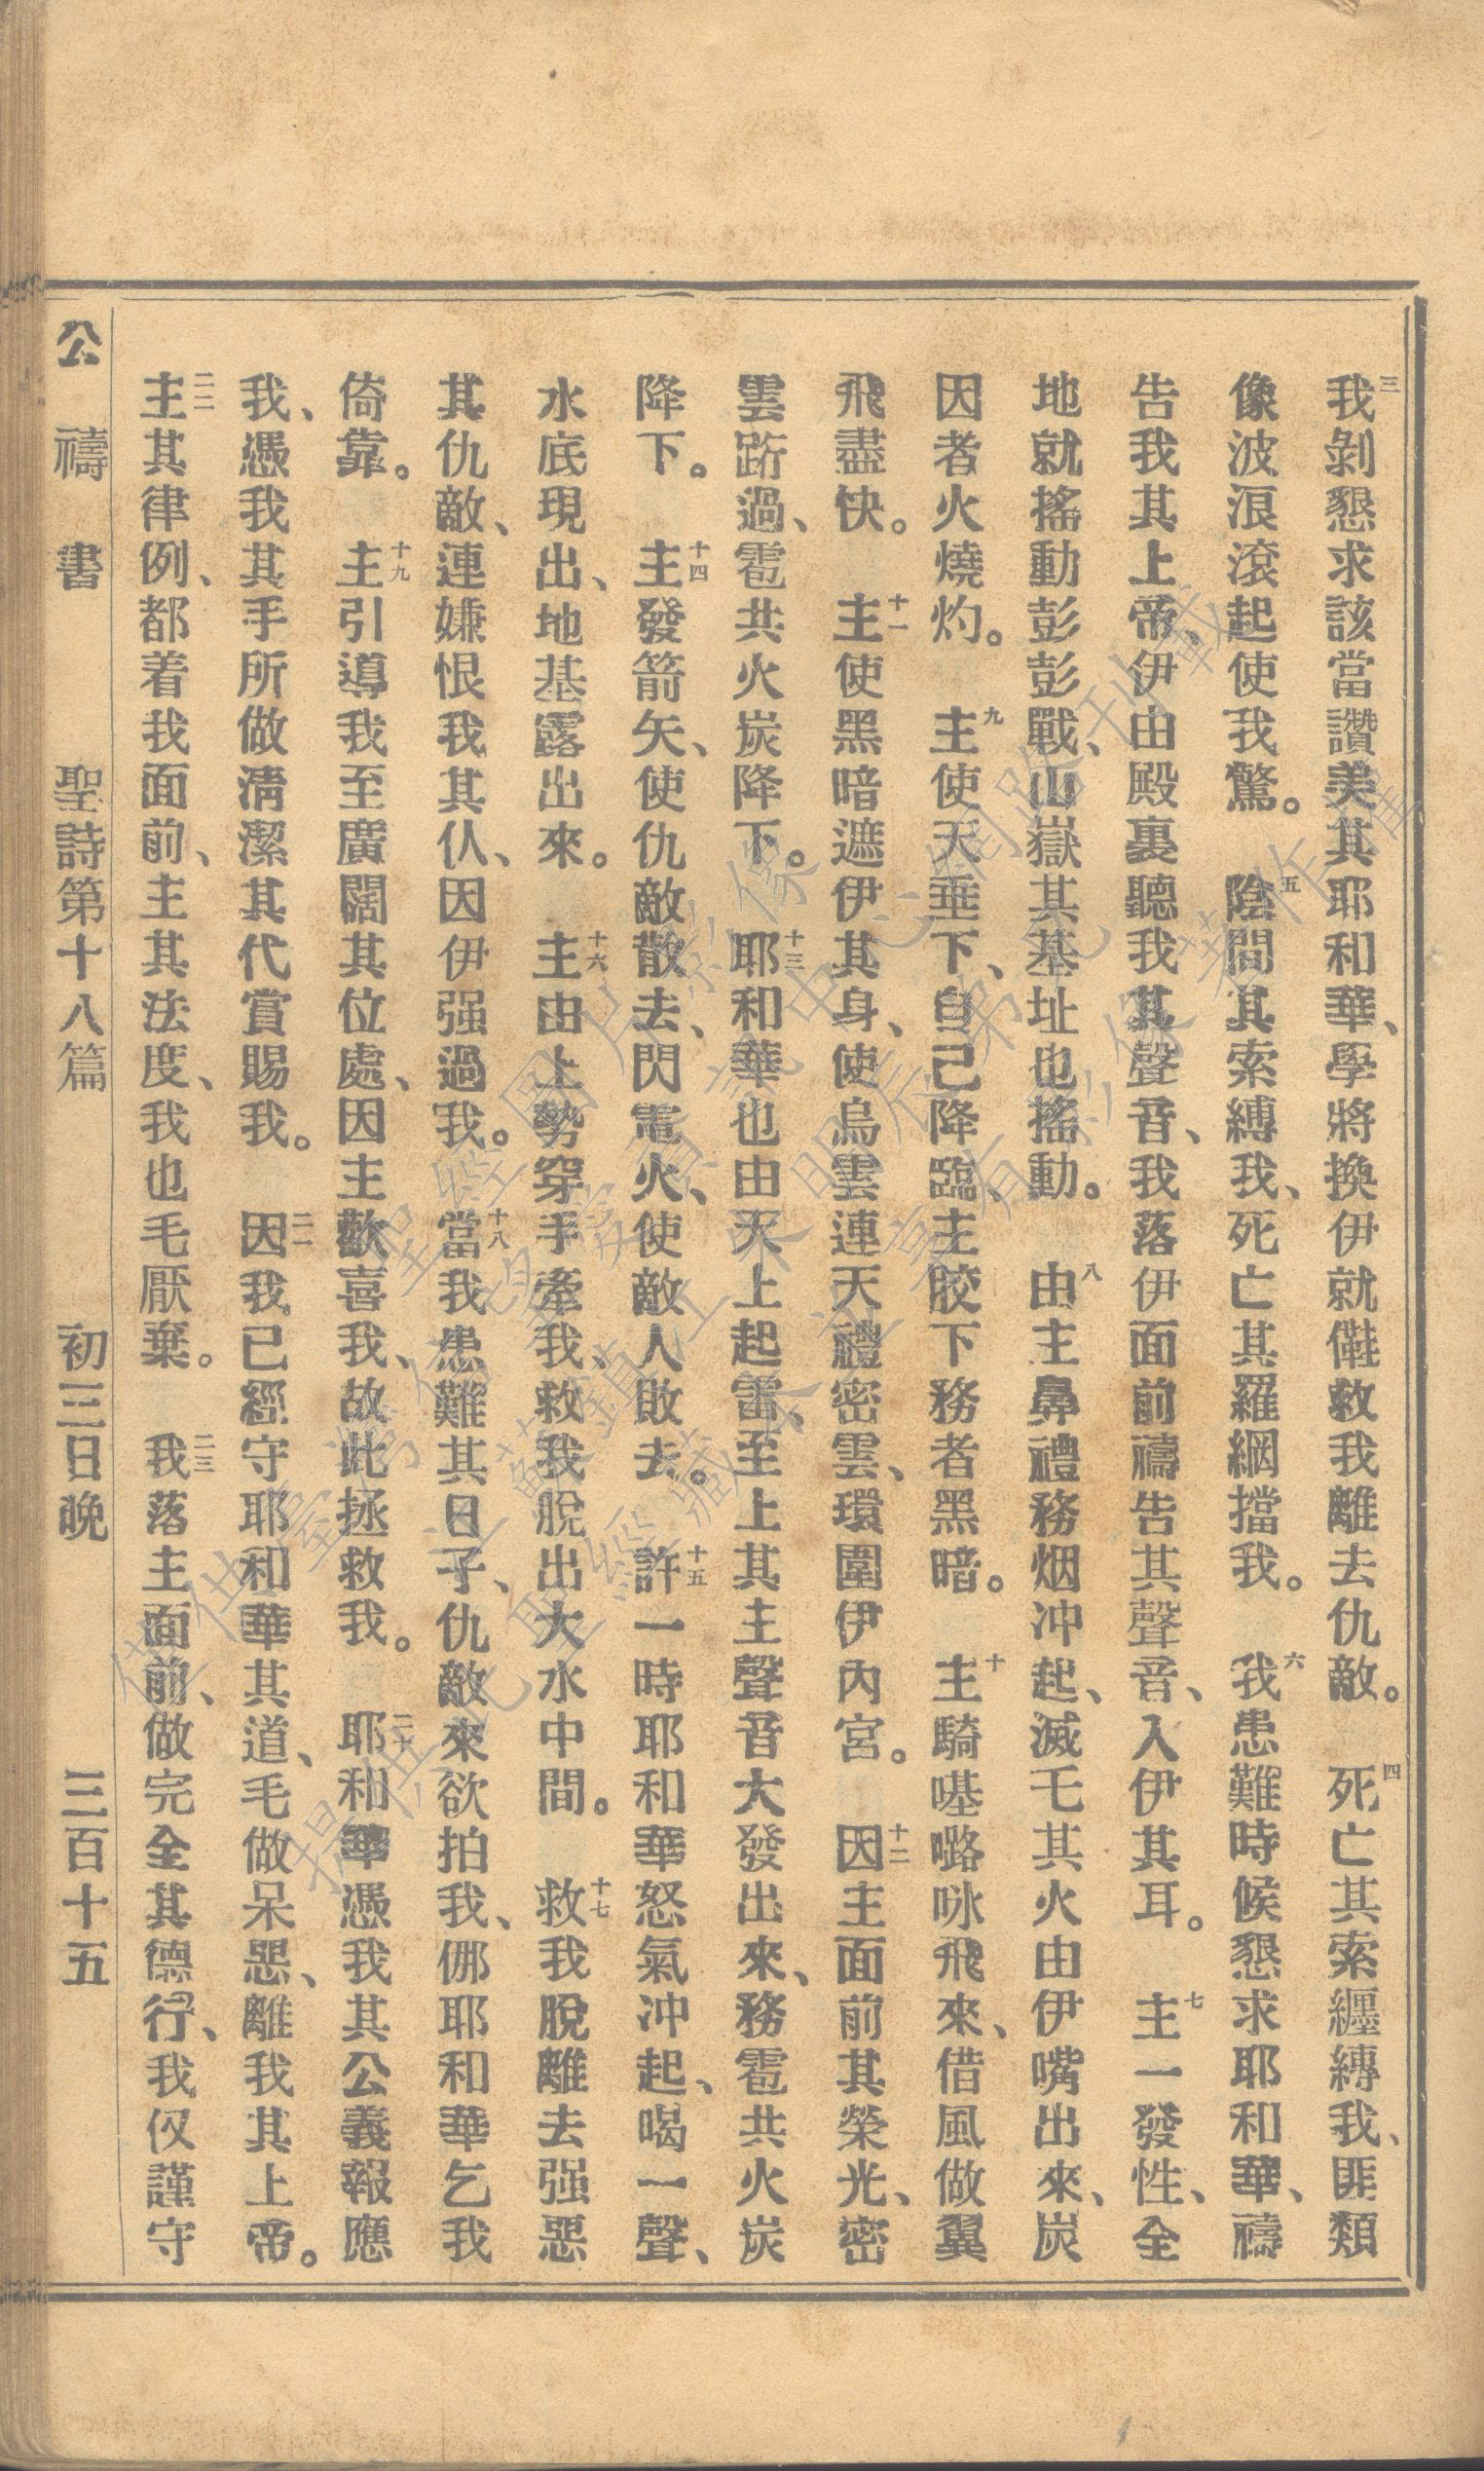 三我剝懇求該當讚美其耶和華、學將換伊就㑻救我離去仇敵。 四死亡其索纏縛我、匪類
像波浪滾起使我驚。 五陰間其索縛我、死亡其羅網擋我。 六我患難時候懇求耶和華、禱
告我其上帝、伊由殿裏聽我其聲音、我落伊面前禱告其聲音、入伊其耳。 七主一發性、全
地就搖動彭彭戰、山嶽其基址也搖動。 八由主鼻禮務烟冲起、滅乇其火由伊嘴出來、炭
因者火燒灼。 九主使天垂下、自己降臨、主骹下務者黑暗。 十主騎𡀔嚕咏飛來、借風做翼
飛盡快。 十一主使黑暗遮伊其身、使烏雲連天禮密雲、環圍伊內宮。 十二因主面前其榮光、密
雲跴過、雹共火炭降下。 十三耶和華也由天上起雷、至上其主聲音大發出來、務雹共火炭
降下。 十四主發箭矢、使仇敵散去、閃電火、使敵人敗去。 十五許一時耶和華怒氣冲起、喝一聲、
水底現出、地基露出來。 十六主由上勢穿手牽我、救我脫出大水中間。 十七救我脫離去强惡
其仇敵、連嫌恨我其仈、因伊强過我。 十八當我患難其日子、仇敵來欲拍我、㑚耶和華乞我
倚靠。 十九主引導我至廣闊其位處、因主歡喜我、故此拯救我。 二十耶和華憑我其公義報應
我、憑我其手所做淸潔其代賞賜我。 二一因我已經守耶和華其道、毛做呆惡、離我其上帝。
二二主其律例、都着我面前、主其法度、我也毛厭棄。 二三我落主面前、做完全其德行、我仅謹守
公禱書 聖詩第十八篇 初三日晚 三百十五